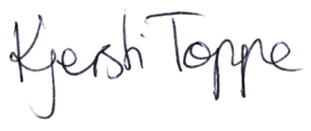 Kjersti Toppe